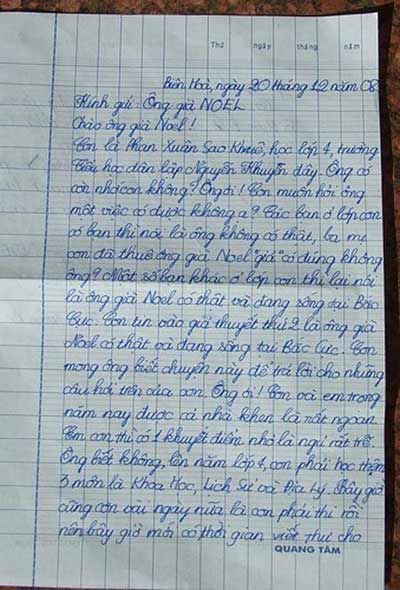 Thứ ngày tháng năm
Biên Hoà, ngày 20 tháng 12 năm 08
Kính gửi: Ông già NOEL
Chào ông già Noel!
Con là Phan Xuân Sao Khuê, học lớp 4, trường
Tiểu học dân lập Nguyễn Khuyến đây. Ông có
còn nhớ con không? Ông ơi! Con muốn hỏi ông
một việc có được không ạ? Các bạn ở lớp con
có bạn thì nói là ông không có thật, ba mẹ
con đã thuê ông già Noel "giả" có đúng không
ông? Một số bạn khác ở lớp con thì lại nói
là ông già Noel có thật và đang sống tại Bắc
Cực. Con tin vào giả thuyết thứ 2 là ông già
Noel có thật và đang sống tại Bắc Cực. Con
mong ông biết chuyện này để trả lời cho những
câu hỏi trên của con. Ông ơi! Con và em trong
năm nay được cả nhà khen là rất ngoan.
Em con thì có 1 khuyết điểm nhỏ là ngủ rất trễ.
Ông biết không, lên năm lớp 4, con phải học thêm
3 môn là Khoa Học, Lịch Sử và Địa Lý. Bây giờ
cũng còn vài ngày nữa là con phải thi rồi
nên bây giờ mới có thời gian viết thư cho
QUANG TÂM